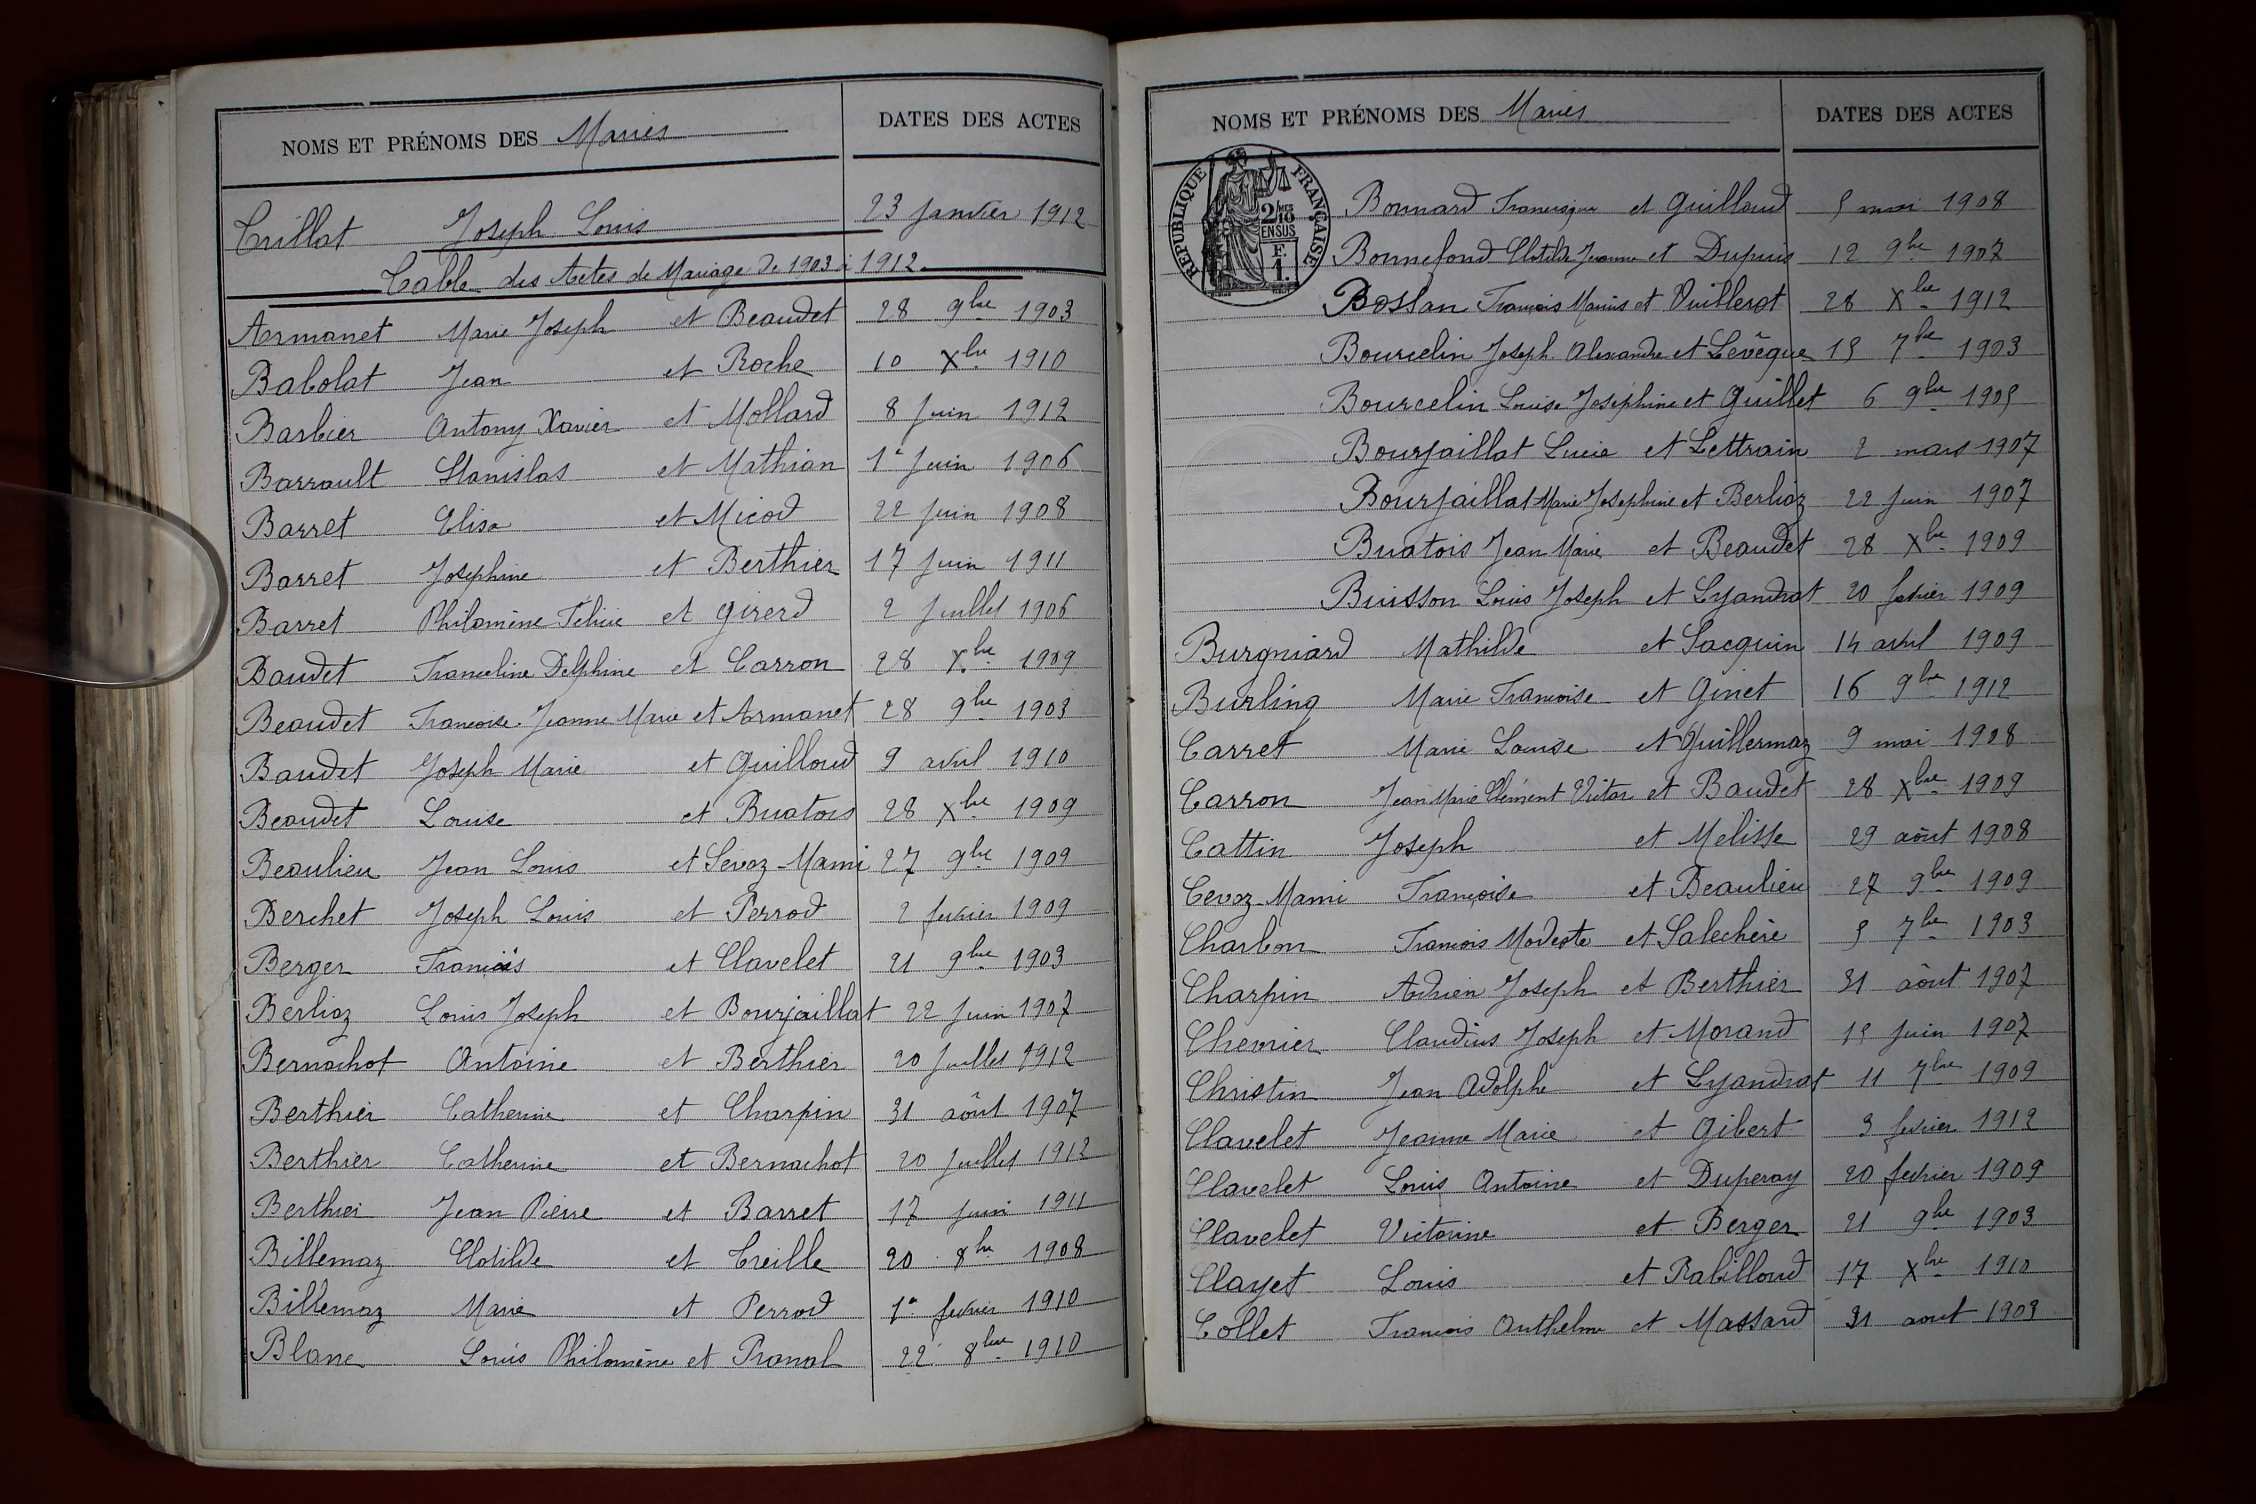 NOMS ET PRÉNOMS DES Mariés DATES DES ACTES
Trillat Joseph Louis 23 Janvier 1912
Table des Actes de Mariage de 1903 à 1912.
Armanet Marie Joseph et Beaudet 28 9bre 1903
Babolat Jean et Roche 10 Xbre 1910
Barbier Antony Xavier et Mollard 8 Juin 1912
Barrault Stanislas et Mathian 1er Juin 1906
Barret Elisa et Micod 22 Juin 1908
Barret Joséphine et Berthier 17 Juin 1911
Barret Philomène Félicie et Girerd 2 Juillet 1906
Baudet Franceline Delphine et Carron 28 Xbre 1909
Beaudet Francoise Jeanne Marie et Armanet 28 9bre 1903
Baudet Joseph Marie et Guilloud 9 avril 1910
Beaudet Louise et Buatois 28 Xbre 1909
Beaulieu Jean Louis et Sevoz-Mami 27 9bre 1909
Berchet Joseph Louis et Perrod 2 fevrier 1909
Berger François et Clavelet 21 9bre 1903
Berlioz Louis Joseph et Bourjaillat 22 Juin 1907
Bernachot Antoine et Berthier 20 Juillet 1912
Berthier Catherine et Charpin 31 août 1907
Berthier Catherine et Bernachot 20 Juillet 1912
Berthier Jean Pierre et Barret 17 Juin 1911
Billemaz Clotilde et Creille 20 8bre 1908
Billemaz Marie et Perrod 1er fevrier 1910
Blanc Louis Philomène et Pranal 22 8bre 1910
NOMS ET PRÉNOMS DES Mariés DATES DES ACTES
RÉPUBLIQUE FRANÇAISE
2/10 MES
EN SUS
F.
1.
Bonnard Francisque et Guilloud 5 mai 1908
Bonnefond Clotilde Jeanne et Dupuis 12 9bre 1907
Bossan François Marius et Vuillerot 28 Xbre 1912
Bourcelin Joseph Alexandre et Levêque 15 7bre 1903
Bourcelin Louise Joséphine et Guillet 6 9bre 1905
Bourjaillat Lucie et Lettrain 2 mars 1907
Bourjaillat Marie Josephine et Berlioz 22 Juin 1907
Buatois Jean Marie et Beaudet 28 Xbre 1909
Buisson Louis Joseph et Lyandrat 20 fevrier 1909
Burgniard Mathilde et Jacquin 14 avril 1909
Burling Marie Francoise et Ginet 16 9bre 1912
Carret Marie Louise et Guillermaz 9 mai 1908
Carron Jean Marie Clément Victor et Baudet 28 Xbre 1909
Cattin Joseph et Melisse 29 août 1908
Cevoz-Mami Françoise et Beaulieu 27 9bre 1909
Charbon Francois Modeste et Salechère 5 7bre 1903
Charpin Adrien Joseph et Berthier 31 août 1907
Chevrier Claudius Joseph et Morand 15 Juin 1907
Christin Jean Adolphe et Lyandrat 11 7bre 1909
Clavelet Jeanne Marie et Gibert 3 fevrier 1912
Clavelet Louis Antoine et Duperay 20 fevrier 1909
Clavelet Victorine et Berger 21 9bre 1903
Clayet Louis et Rabilloud 17 Xbre 1910
Collet Francois Anthelme et Massard 31 aout 1903